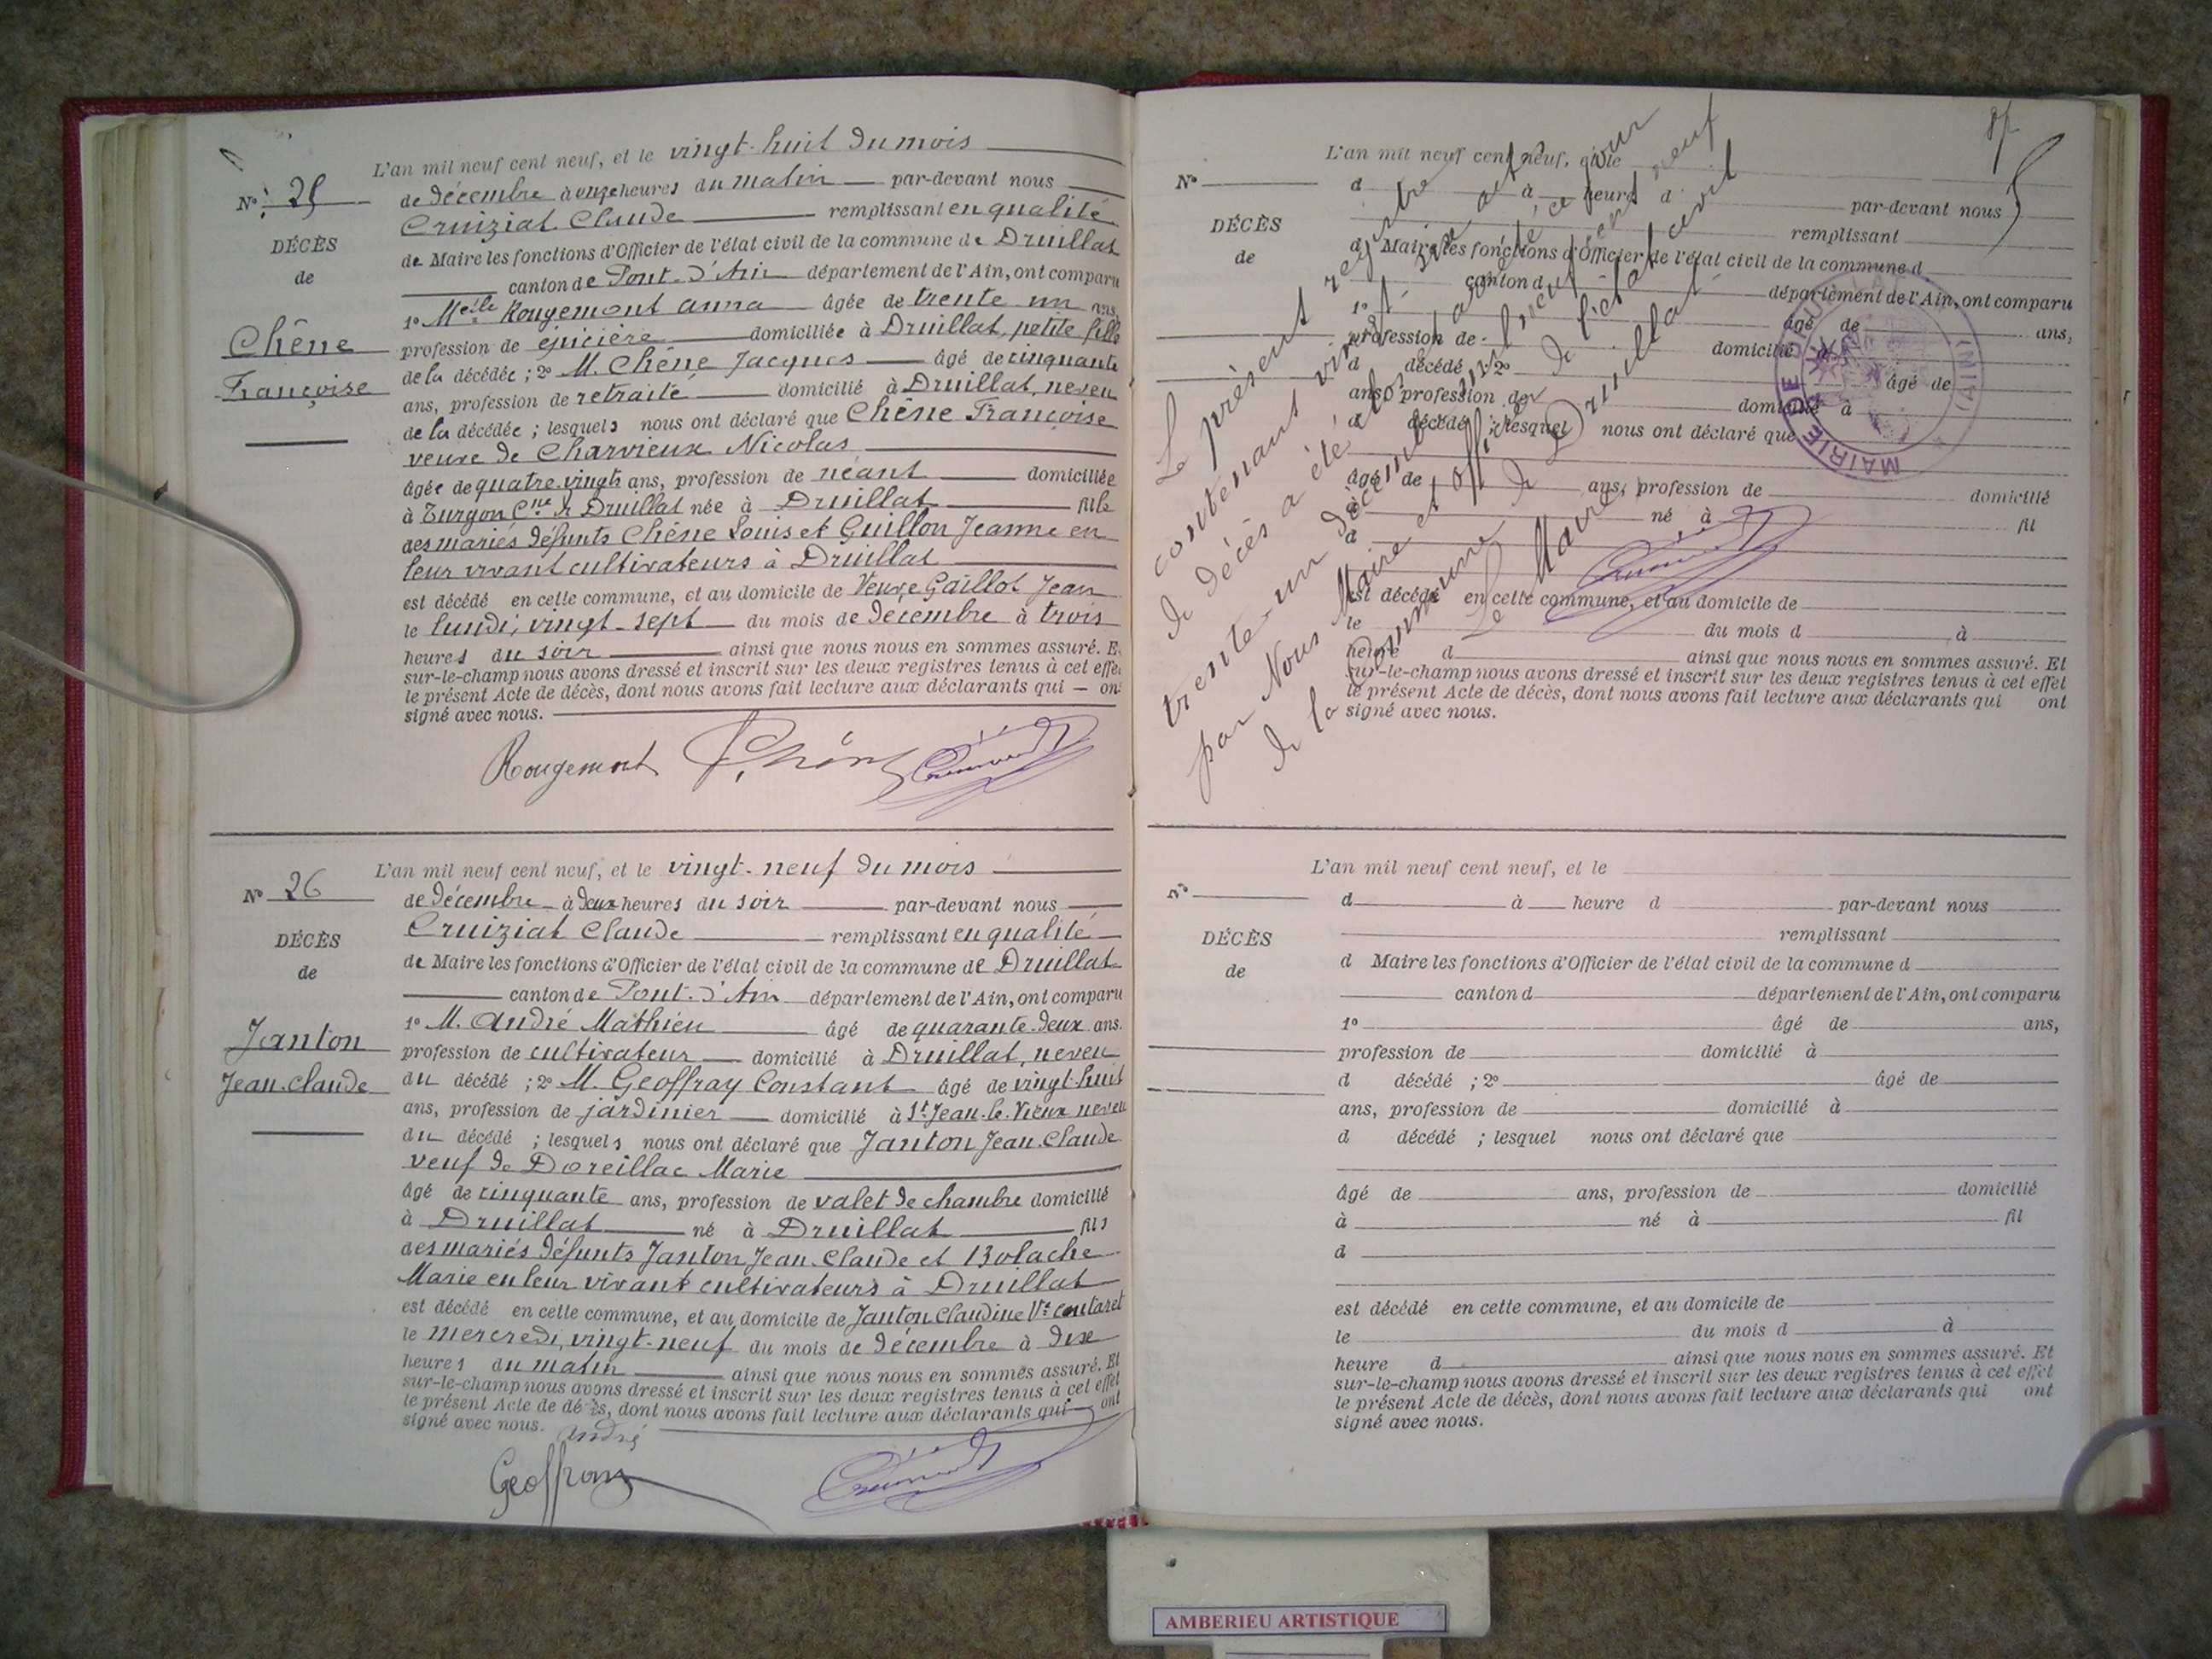 L'an mil neuf cent neuf, et le vingt-huit du mois
N° 25
de décembre à onze heures du matin par-devant nous
Cruiziat Claude remplissant en qualité
DÉCÈS
de Maire les fonctions d'Officier de l'état civil de la commune de Druillat
de
canton de Pont-d'Ain département de l'Ain, ont comparu
1° Melle Rougemont anna âgée de trente un ans,
Chêne
profession de épicière domiciliée à Druillat, petite fille
de la décédée ; 2° M. Chêne Jacques âgé de cinquante
Françoise
ans, profession de retraité domicilié à Druillat, neveu
de la décédée ; lesquels nous ont déclaré que Chêne Françoise
veuve de Charvieux Nicolas
âgée de quatre-vingts ans, profession de néant domiciliée
à Turgon Cne de Druillat née à Druillat fille
des mariés défunts Chêne Louis et Guillon Jeanne en
leur vivant cultivateurs à Druillat
est décédé en cette commune, et au domicile de Veuve Gaillot Jean
le lundi, vingt-sept du mois de décembre à trois
heures du soir ainsi que nous nous en sommes assuré. E
sur-le-champ nous avons dressé et inscrit sur les deux registres tenus à cet effe
le présent Acte de décès, dont nous avons fait lecture aux déclarants qui ont
signé avec nous.
Rougemont
L'an mil neuf cent neuf, et le vingt-neuf du mois
N° 26
de décembre à deux heures du soir par-devant nous
Cruiziat Claude remplissant en qualité
DÉCÈS
de Maire les fonctions d'Officier de l'état civil de la commune de Druillat
de
canton de Pont-d'Ain département de l'Ain, ont comparu
1° M. André Mathieu âgé de quarante-deux ans.
Janton
profession de cultivateur domicilié à Druillat, neveu
Jean-Claude
du décédé ; 2° M. Geoffray Constant âgé de vingt-huit
ans, profession de jardinier domicilié à St Jean-le-Vieux neveu
du décédé ; lesquels nous ont déclaré que Janton Jean-Claude
veuf de Doreillac Marie
âgé de cinquante ans, profession de valet de chambre domicilié
à Druillat né à Druillat fils
des mariés défunts Janton Jean-Claude et Bolache
Marie en leur vivant cultivateurs à Druillat
est décédé en cette commune, et au domicile de Janton Claudine Ve
le mercredi, vingt-neuf du mois de décembre à dix
heures du matin ainsi que nous nous en sommes assuré. Et
sur-le-champ nous avons dressé et inscrit sur les deux registres tenus à cet effet
le présent Acte de décès, dont nous avons fait lecture aux déclarants qui ont
signé avec nous.
André
Geoffray
87
L'an mil neuf cent neuf, et le
N°
d à heure d par-devant nous
DÉCÈS
remplissant
de
d Maire les fonctions d'Officier de l'état civil de la commune d
canton d département de l'Ain, ont comparu
1° âgé de ans,
profession de domicilié
d décédé ; 2° âgé de
ans, profession de domicilié à
d décédé ; lesquel nous ont déclaré que
âgé de ans, profession de domicilié
à né à fil
d
est décédé en cette commune, et au domicile de
le du mois d à
heure d ainsi que nous nous en sommes assuré. Et
sur-le-champ nous avons dressé et inscrit sur les deux registres tenus à cet effet
le présent Acte de décès, dont nous avons fait lecture aux déclarants qui ont
signé avec nous.
Le présent registre
contenant vingt-six actes
de décès a été clos et arrêté ce jour
trente-un décembre mil neuf cent neuf
par Nous Maire et officier de l'état civil
de la commune de Druillat
Le Maire
MAIRIE DE DRUILLAT (AIN)
L'an mil neuf cent neuf, et le
N°
d à heure d par-devant nous
remplissant
DÉCÈS
d Maire les fonctions d'Officier de l'état civil de la commune d
de
canton d département de l'Ain, ont comparu
1° âgé de ans,
profession de domicilié à
d décédé ; 2° âgé de
ans, profession de domicilié à
d décédé ; lesquel nous ont déclaré que
âgé de ans, profession de domicilié
à né à fil
d
est décédé en cette commune, et au domicile de
le du mois d à
heure d ainsi que nous nous en sommes assuré. Et
sur-le-champ nous avons dressé et inscrit sur les deux registres tenus à cet effet
le présent Acte de décès, dont nous avons fait lecture aux déclarants qui ont
signé avec nous.
AMBERIEU ARTISTIQUE